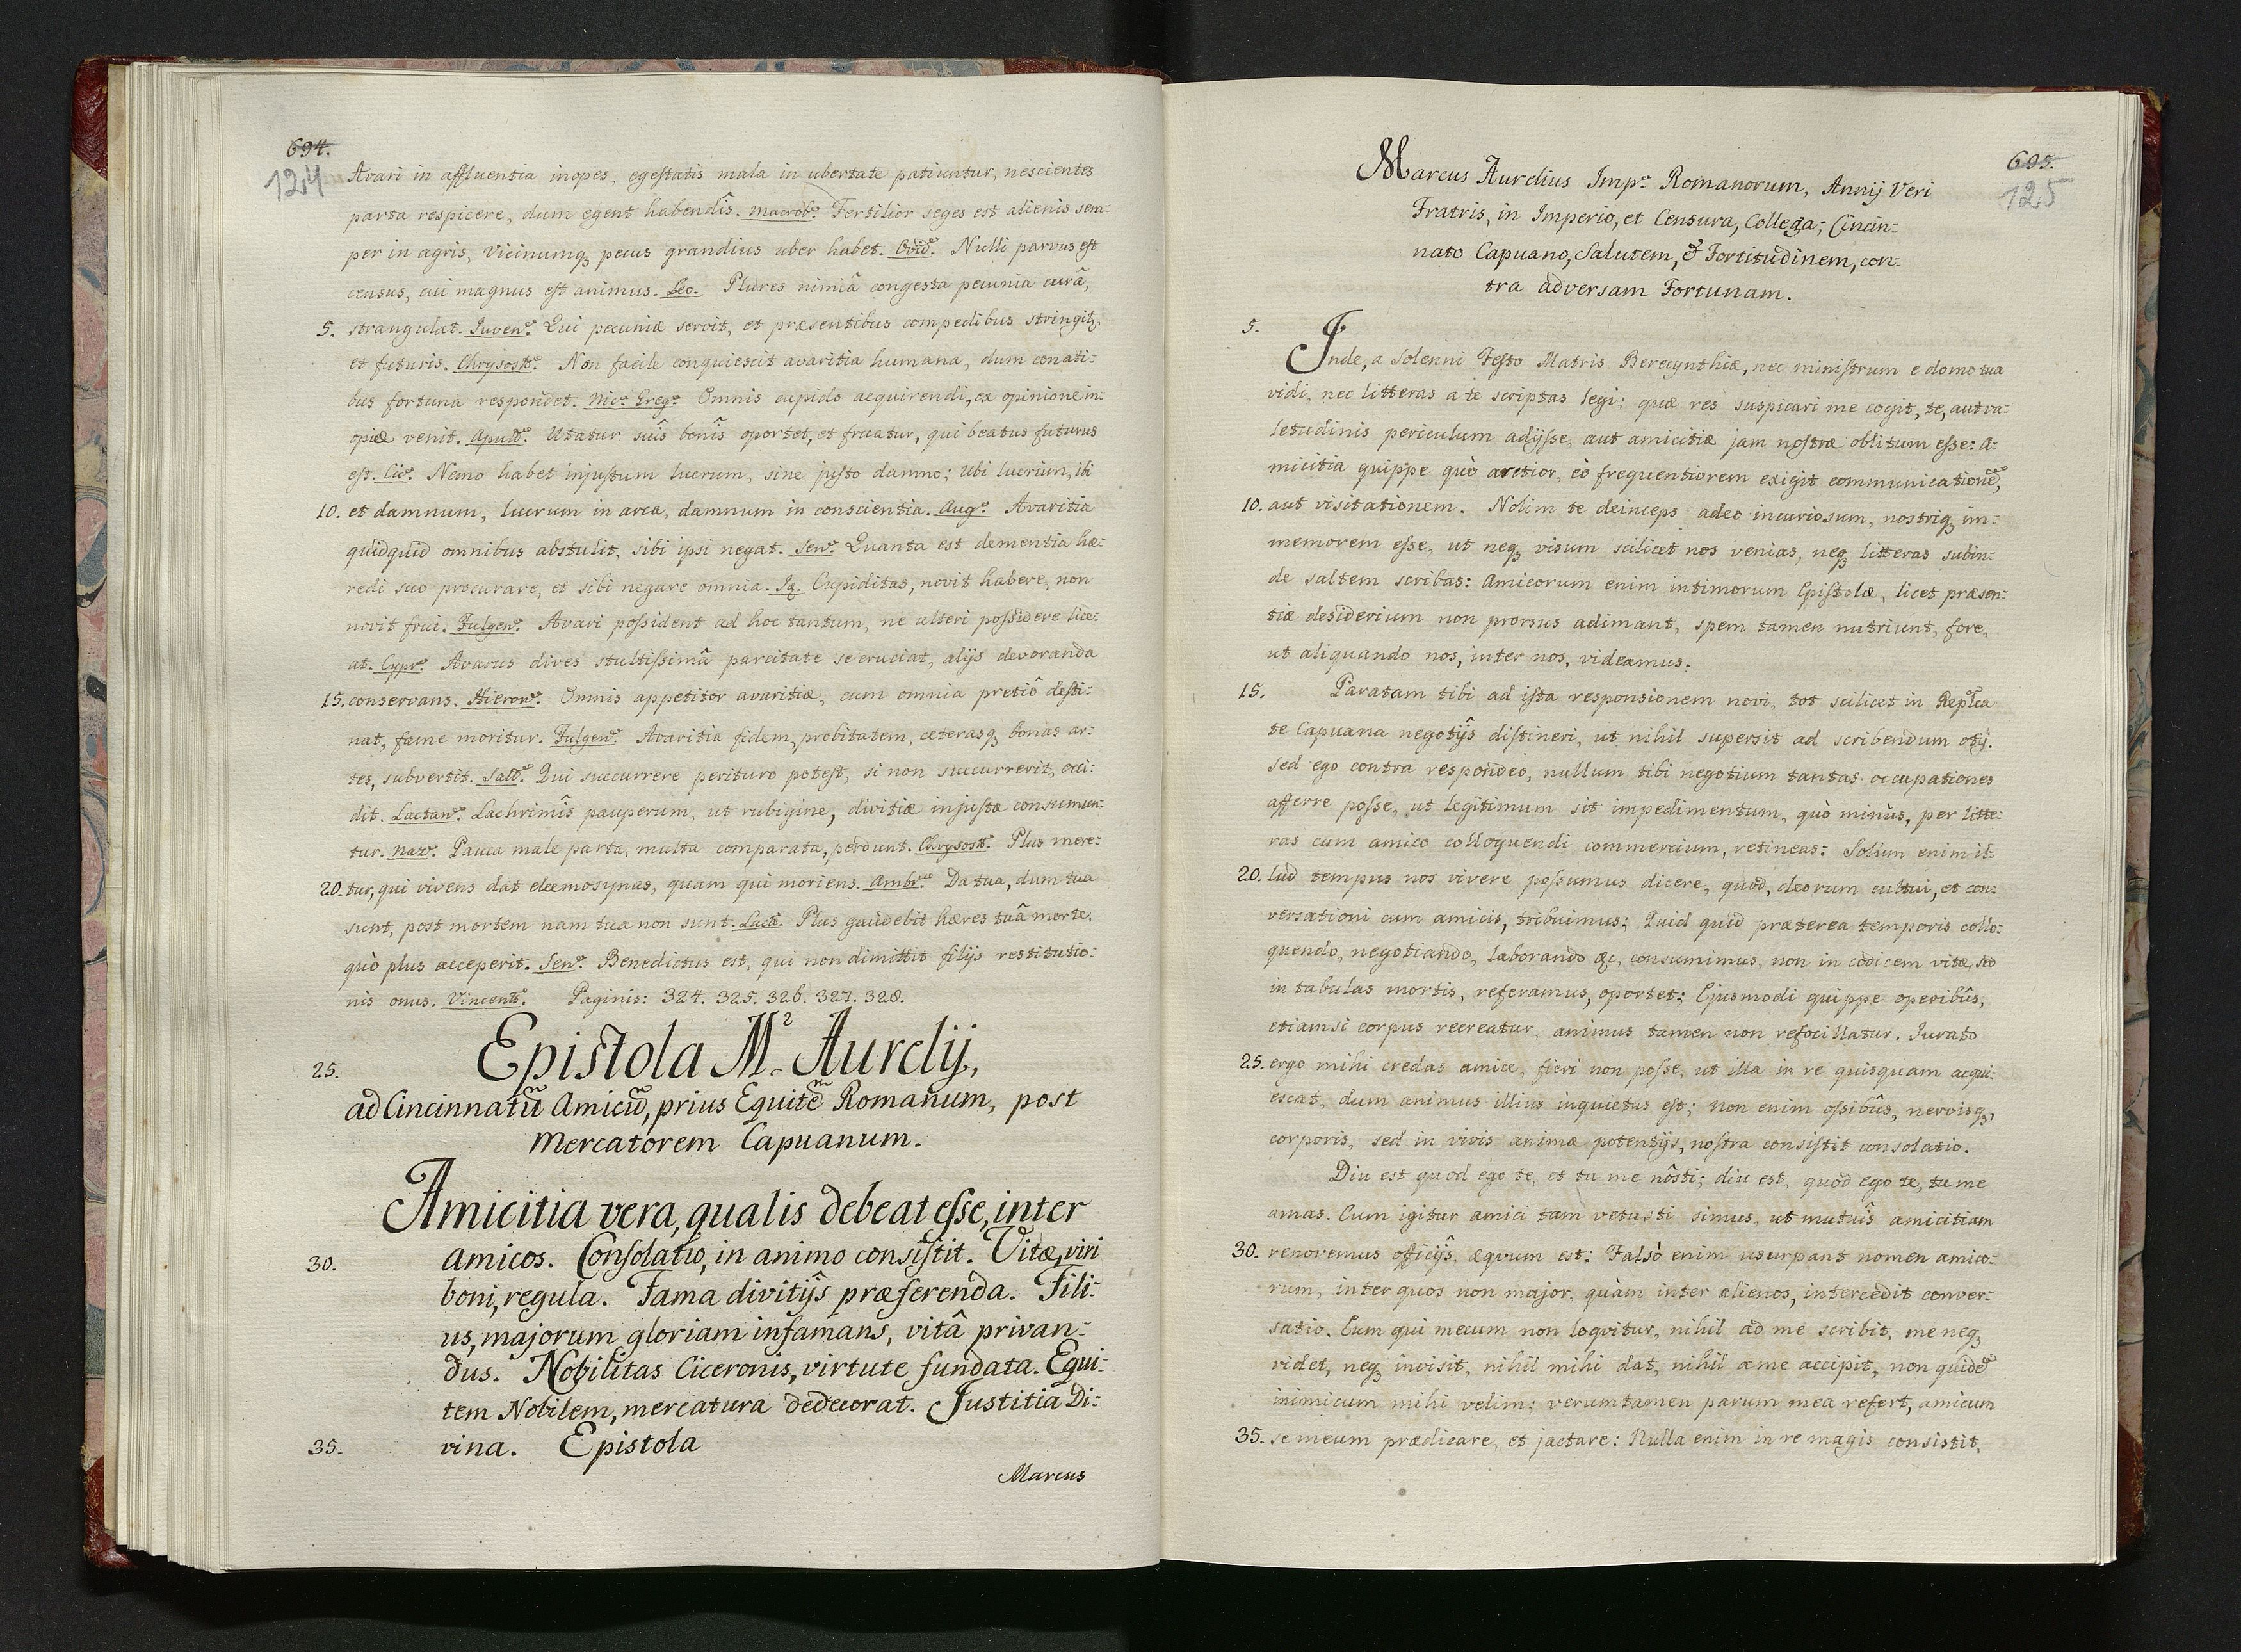 694.
124
Avari in affluentia inopes, egestatis mala in ubertate patiuntur, nescientes
parta respicere, dum egent habendîs. Macrob. Fertilior seges est alienis sem-
per in agris, Vicinumq₃ pecus grandius uber habet. Ovid. Nulli parvus est
census, cui magnus est animus. Leo. Plures nimiâ congesta pecunia curâ,
5. strangulat. Juven. Qui pecuniæ servit, et præsentibus compedibus stringit₃,
et futuris. Chrysost. Non facile conquiescit avaritia humana, dum conati-
bus fortuna respondet. Nic. Greg. Omnis cupido acquirendi, ex opinione in-
opiæ venit. Apull. Utatur suîs bonîs oportet, et fruatur, qui beatus futurus
est. Cic. Nemo habet injustum lucrum, sine justo damno; Ubi lucrum, ibi
10. et damnum, lucrum in arca, damnum in conscientia. Aug. Avaritia
quidquid omnibus abstulit, sibi ipsi negat. Sen. Quanta est dementia hæ-
redi suo procurare, et sibi negare omnia. Id. Cupiditas, novit habere, non
novit frui. Fulgen. Avari possident ad hoc tantum, ne alteri possidere lice-
at. Cypr. Avarus dives stultissimâ parcitate se cruciat, alijs devoranda
15. conservans. Hieron. Omnis appetitor avaritiæ, cum omnia pretiô desti-
nat, fame moritur. Fulgen. Avaritia fidem, probitatem, ceterasq₃ bonas ar-
tes, subvertit. Sall. Qui succurrere perituro potest, si non succurrerit, occi-
dit. Lactan. Lachrimîs pauperum, ut rubigine, divitiæ injustæ consumun-
tur. Naz. Pauca male parta, multa comparata, perdunt. Chrysost. Plus mere-
20. tur, qui vivens dat eleemosynas, quam qui moriens. Ambr. Da tua, dum tua
sunt, post mortem nam tua non sunt. Lact. Plus gaudebit hæres tuâ morte,
quò plus acceperit. Sen. Benedictus est, qui non dimittit filijs restitutio-
nis onus. Vincent. Paginis: 324. 325. 326. 327. 328.
25. Epistola M. Aurelij,
ad Cincinnatũ Amicũ, prius Equitẽ Romanum, post
Mercatorem Capuanum.
Amicitia vera, qualis debeat esse, inter
30. amicos. Consolatio, in animo consistit. Vitæ, viri
boni, regula. Fama divitijs præferenda. Fili-
us, majorum gloriam infamans, vitâ privan-
dus. Nobilitas Ciceronis, virtute fundata. Equi-
tem Nobilem, mercatura dedecorat. Justitia Di-
35. vina. Epistola
Marcus
695.
125
Marcus Aurelius Imp. Romanorum, Annij Veri
Fratris, in Imperio, et Censura, Collega; Cincin-
nato Capuano, Salutem, & Fortitudinem, con-
tra adversam Fortunam.
5. Inde, a Solenni Festo Matris Berecynthiæ, nec ministrum e domo tua
vidi, nec litteras a te scriptas legi: quæ res suspicari me cogit, te, aut va-
letudinis periculum adijsse, aut amicitiæ jam nostræ oblitum esse: A-
micitia quippe quò arctior, eò frequentiorem exigit communicationẽ,
10. aut visitationem. Nolim te deinceps adeo incuriosum, nostriq₃ im-
memorem esse, ut neq₃ visum scilicet nos venias, neq₃ litteras subin-
de saltem scribas: Amicorum enim intimorum Epistolæ, licet præsen-
tiæ desiderium non prorsus adimant, spem tamen nutriunt, fore,
ut aliquando nos, inter nos, videamus.
15. Paratam tibi ad ista responsionem novi, tot scilicet in Replca
te Capuana negotijs distineri, ut nihil supersit ad scribendum otij.
Sed ego contra respondeo, nullum tibi negotium tantas occupationes
afferre posse, ut legitimum sit impedimentum, quò minùs, per litte-
ras cum amico colloquendi commercium, retineas: Solùm enim il-
20. lud tempus nos vivere possumus dicere, quod, deorum cultui, et con-
versationi cum amicis, tribuimus; Quid quid præterea temporis collo-
quendo, negotiando, laborando &c, consumimus, non in codicem vitæ, sed
in tabulas mortis, referamus, oportet; Ejusmodi quippe operibûs,
etiamsi corpus recreatur, animus tamen non refocillatur. Jurato
25. ergo mihi credas amice, fieri non posse, ut illa in re quisquam acqui-
escat, dum animus illius inquietus est; Non enim ossibûs, nervisq₃,
corporis, sed in vivis animæ potentijs, nostra consistit consolatio.
Diu est quod ego te, et tu me nôsti; diu est, quod ego te, tu me
amas. Cum igitur amici tam vetusti simus, ut mutuîs amicitiam
30. renovemus officijs, æqvum est: Falsò enim usurpant nomen amico-
rum, inter quos non major, quàm inter alienos, intercedit conver-
satio. Eum qui mecum non loqvitur, nihil ad me scribit, me neq₃
videt, neq₃ invisit, nihil mihi dat, nihil a me accipit, non quidẽ
inimicum mihi velim; verumtamen parum mea refert, amicum
35. se meum prædicare, et jactare: Nulla enim in re magis consistit,